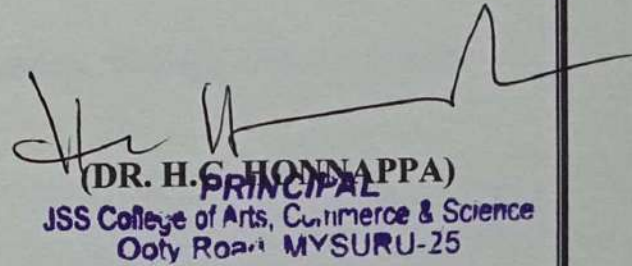 (DR. H.C. HONNAPPA)
PRINCIPAL
JSS College of Arts, Commerce & Science
Ooty Road MYSURU-25